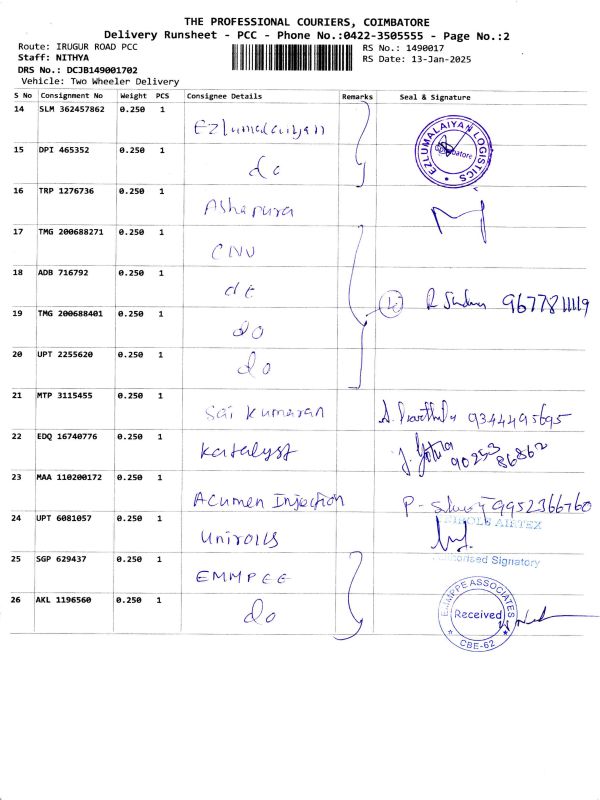 THE PROFESSIONAL COURIERS, COIMBATORE
Delivery Runsheet - PCC - Phone No.:0422-3505555 - Page No.:2
Route: IRUGUR ROAD PCC
RS No.: 1490017
Staff: NITHYA
RS Date: 13-Jan-2025
DRS No.: DCJB149001702
Vehicle: Two Wheeler Delivery
S No Consignment No Weight PCS Consignee Details Remarks Seal & Signature
14 SLM 362457862 0.250 1 EZlumalaiyan
EZLUMALAIYAN LOGISTICS Coimbatore
15 DPI 465352 0.250 1 do
16 TRP 1276736 0.250 1 Ashapura
17 TMG 200688271 0.250 1 CNV
18 ADB 716792 0.250 1 do
19 TMG 200688401 0.250 1 do 4 9677811119
20 UPT 2255620 0.250 1 do
21 MTP 3115455 0.250 1 Sai Kumaran 9344495695
22 EDQ 16740776 0.250 1 Katalyst 90253 86862
23 MAA 110200172 0.250 1 Acumen Injection 9952366760
24 UPT 6081057 0.250 1 Unirolls AIRTEX
Signatory
25 SGP 629437 0.250 1 EMMPEE
26 AKL 1196560 0.250 1 do
ASSOCIATES Received CBE-62